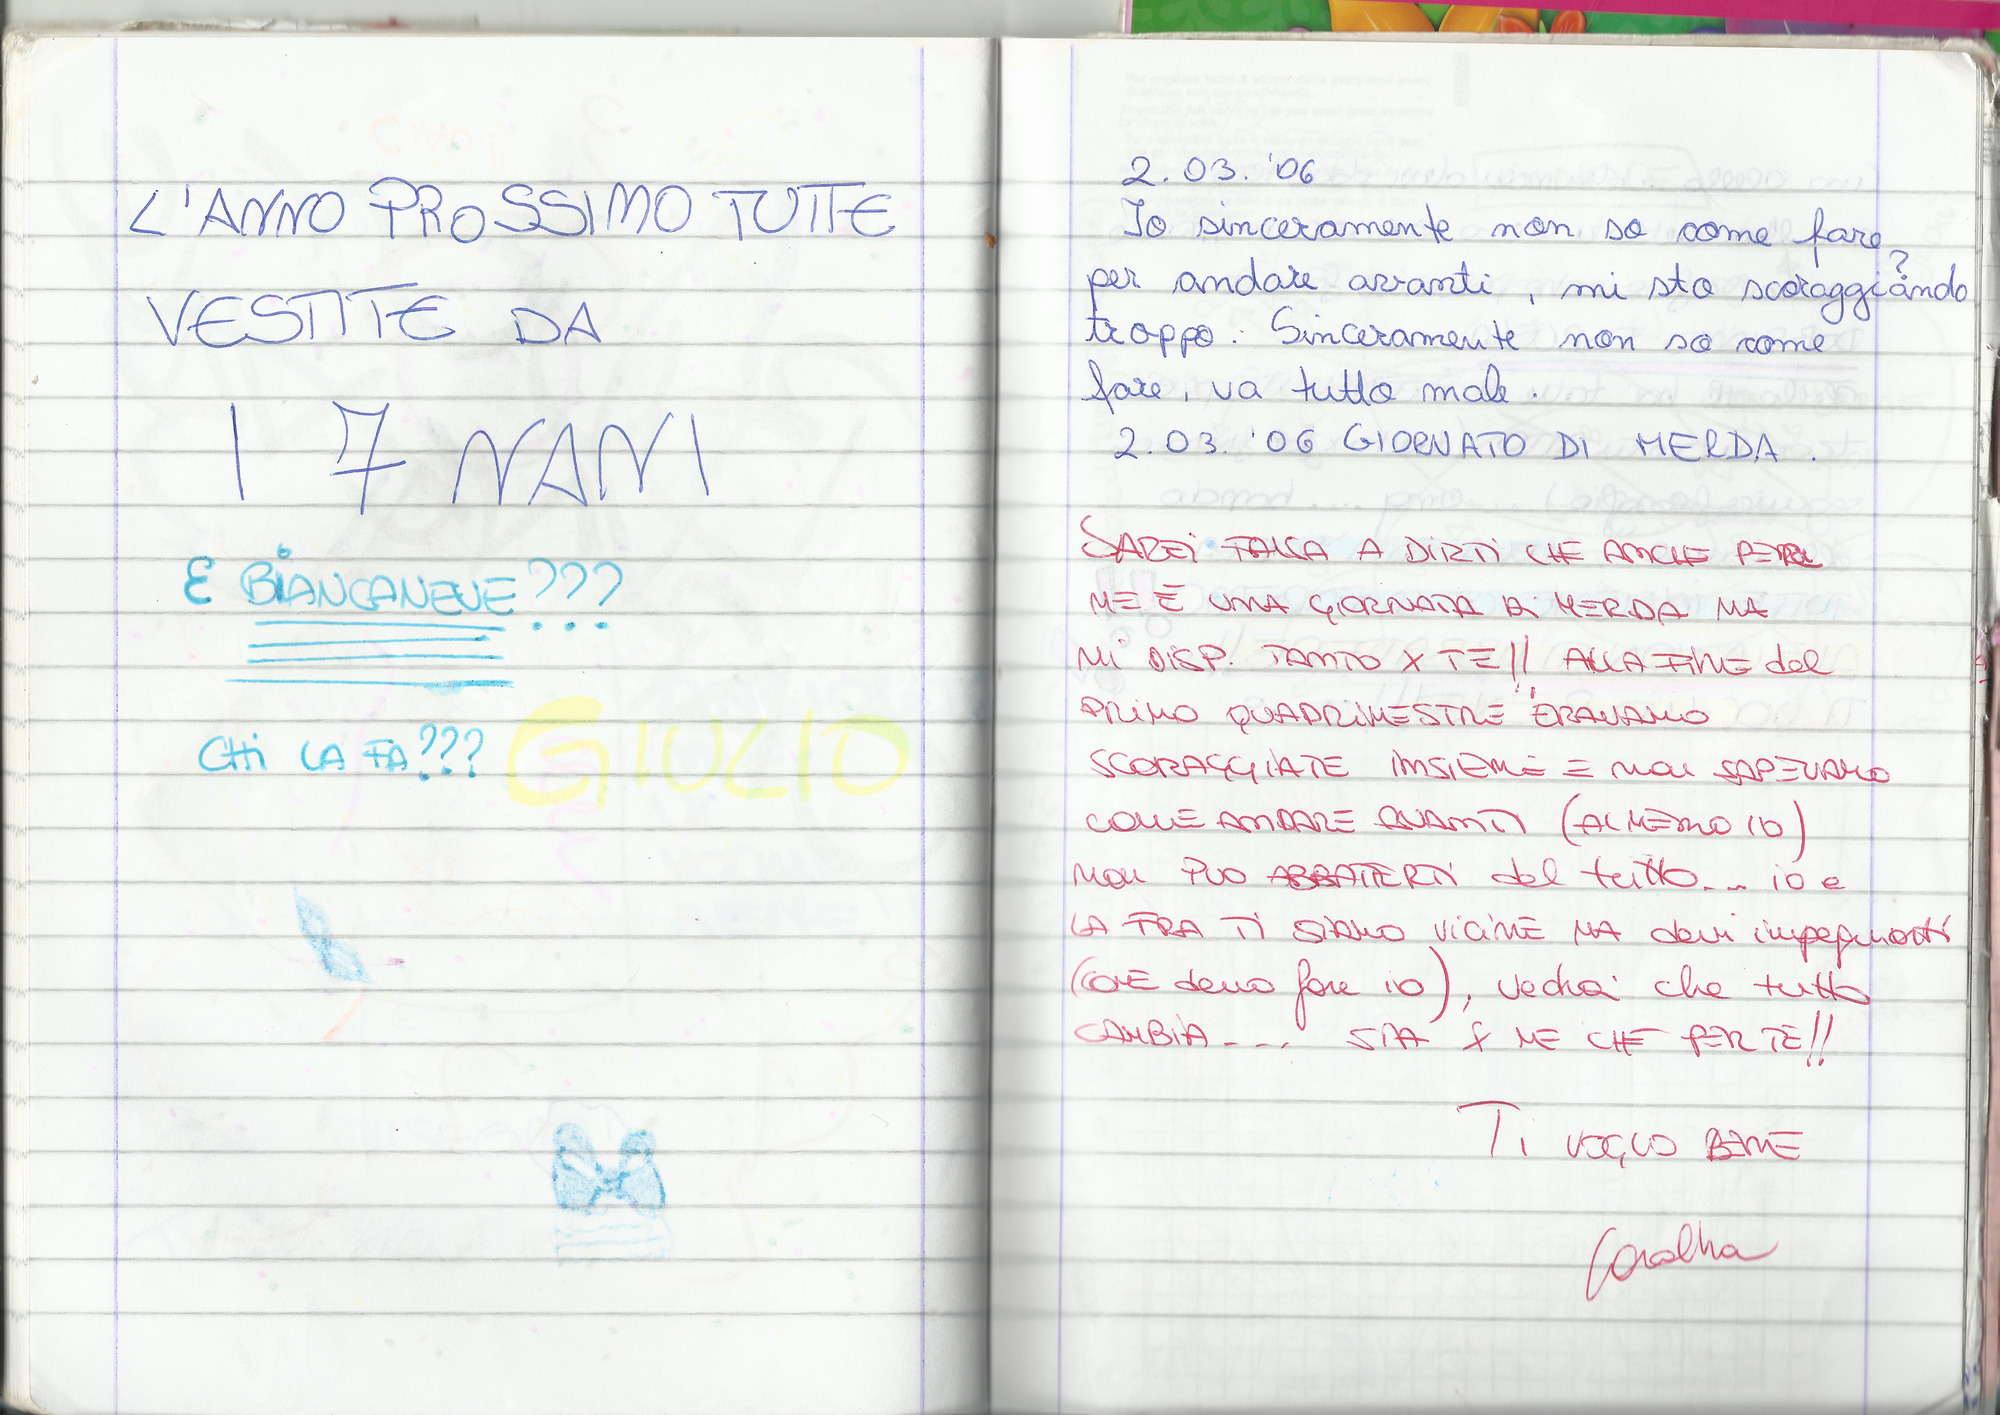 L'ANNO PROSSIMO TUTTE
VESTITE DA
I 7 NANI
E BIANCANEVE???
CHI LA FA??? GIULIO
2.03.'06
Io sinceramente non so come fare
per andare avanti, mi sto scoraggiando?
troppo. Sinceramente non so come
fare, va tutto male.
2.03.'06 GIORNATO DI MERDA.
SAREI FALSA A DIRTI CHE ANCHE PER
ME È UNA GIORNATA DI MERDA MA
MI DISP. TANTO X TE!! ALLA FINE del
PRIMO QUADRIMESTRE ERAVAMO
SCORAGGIATE INSIEME E NON SAPEVAMO
COME ANDARE AVANTI (ALMENO IO)
NON PUO ABBATTERTI del tutto... io e
LA FRA TI SIAMO VICINE MA devi impegnarti
(COME devo fare io), vedrai che tutto
CAMBIA.... STA X ME CHE PER TE!!
TI VOGLIO BENE